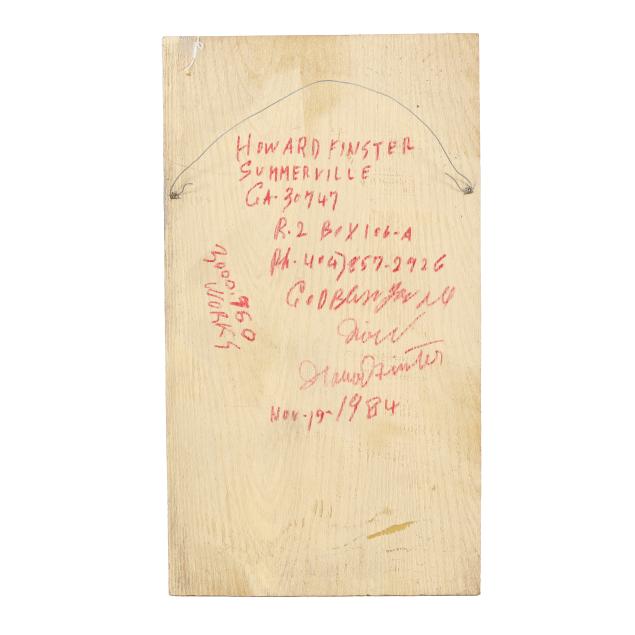 HOWARD FINSTER
SUMMERVILLE
GA-30747
R.2 BOX 106-A
Ph. 404)857-2926
GOD Bless
Howard Finster
Nov-19-1984
3000.950
WORKS